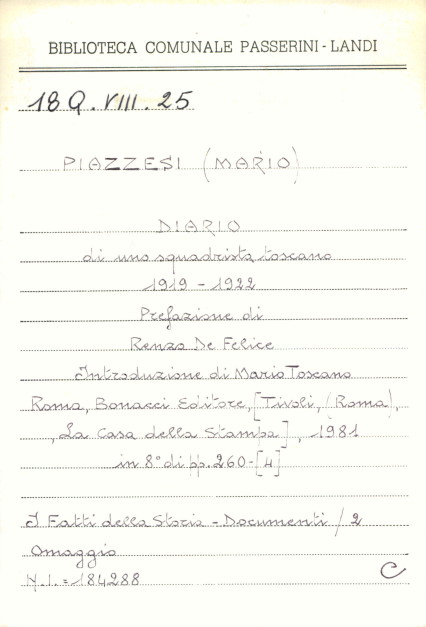 BIBLIOTECA COMUNALE PASSERINI-LANDI
18 Q. VIII. 25
PIAZZESI (MARIO)
DIARIO
di uno squadrista toscano
1919 - 1922
Prefazione di
Renzo De Felice
Introduzione di Mario Toscano
Roma, Bonacci Editore, [Tivoli, (Roma),
, La Casa della Stampa], 1981
in 8° di pp. 260-[4]
I Fatti della Storia - Documenti / 2
Omaggio
N.I. = 184288
C